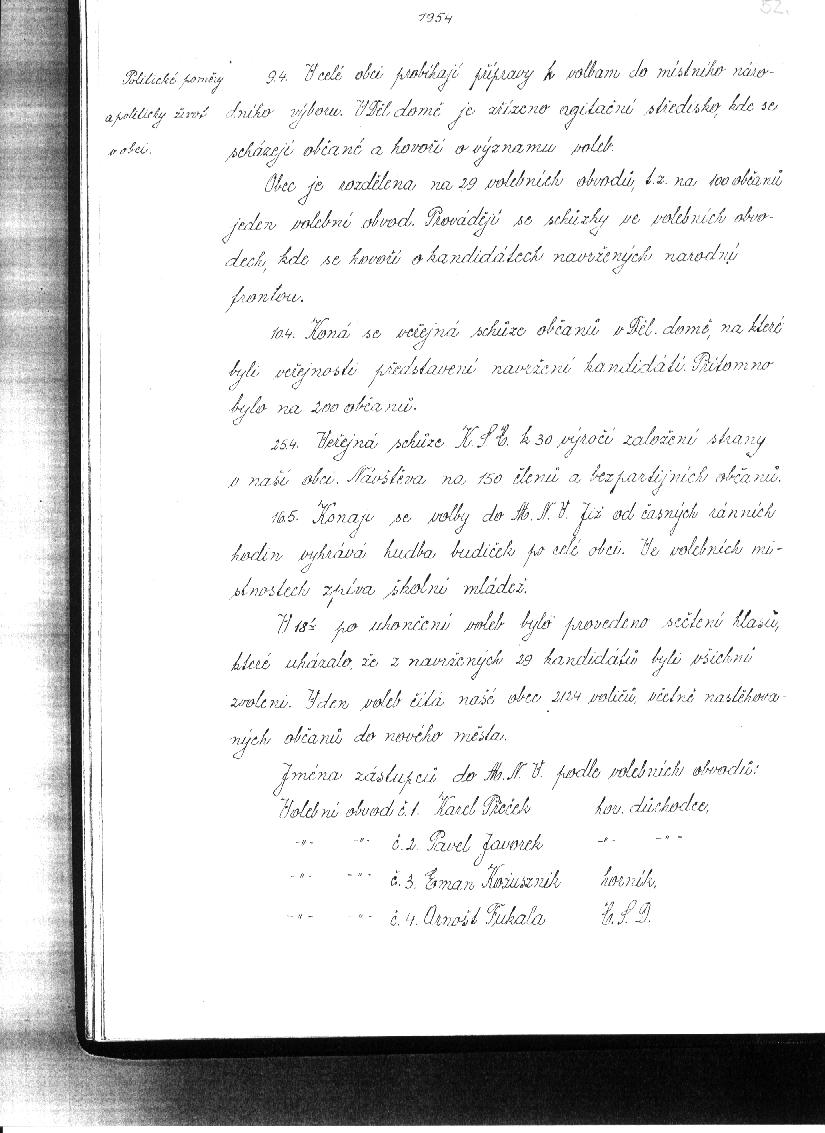 1954
52.
Politické poměry
a politicky život
v obci.
9.4. V celé obci probíhají přípravy k volbam do místního náro-
dního výboru. V Děl. domě je zřízeno agitační středisko, kde se
scházejí občané a hovoří o významu voleb.
Obec je rozdělena na 29 volebních obvodů, t.z. na 100 občanů
jeden volební obvod. Provádějí se schůzky ve volebních obvo-
dech, kde se hovoří o kandidátech navržených narodní
frontou.
10.4. Koná se veřejná schůze občanů v Děl. domě, na které
byli veřejnosti představeni navržení kandidáti. Přítomno
bylo na 200 občanů.
25.4. Veřejná schůze K.S.Č. k 30 výročí založení strany
v naší obci. Návštěva na 150 členů a bezpartijních občanů.
16.5. Konají se volby do M.N.V. Již od časných ránních
hodin vyhrává hudba budíček po celé obci. Ve volebních mí-
stnostech zpíva školní mládež.
V 18 po ukončení voleb bylo provedeno sečtení hlasů,
které ukázalo, že z navržených 29 kandidátů byli všichni
zvoleni. V den voleb čítá naše obec 2124 voličů, včetně nastěhova-
ných občanů do nového města.
Jména zástupců do M.N.V. podle volebních obvodů:
Volební obvod č.1. Karel Přeček hor. důchodce,
-"- -"- č.2. Pavel Javorek -"- -"-
-"- -"- č.3. Eman Kożusznik horník,
-"- -"- č.4. Arnošt Fukala Č.S.D.